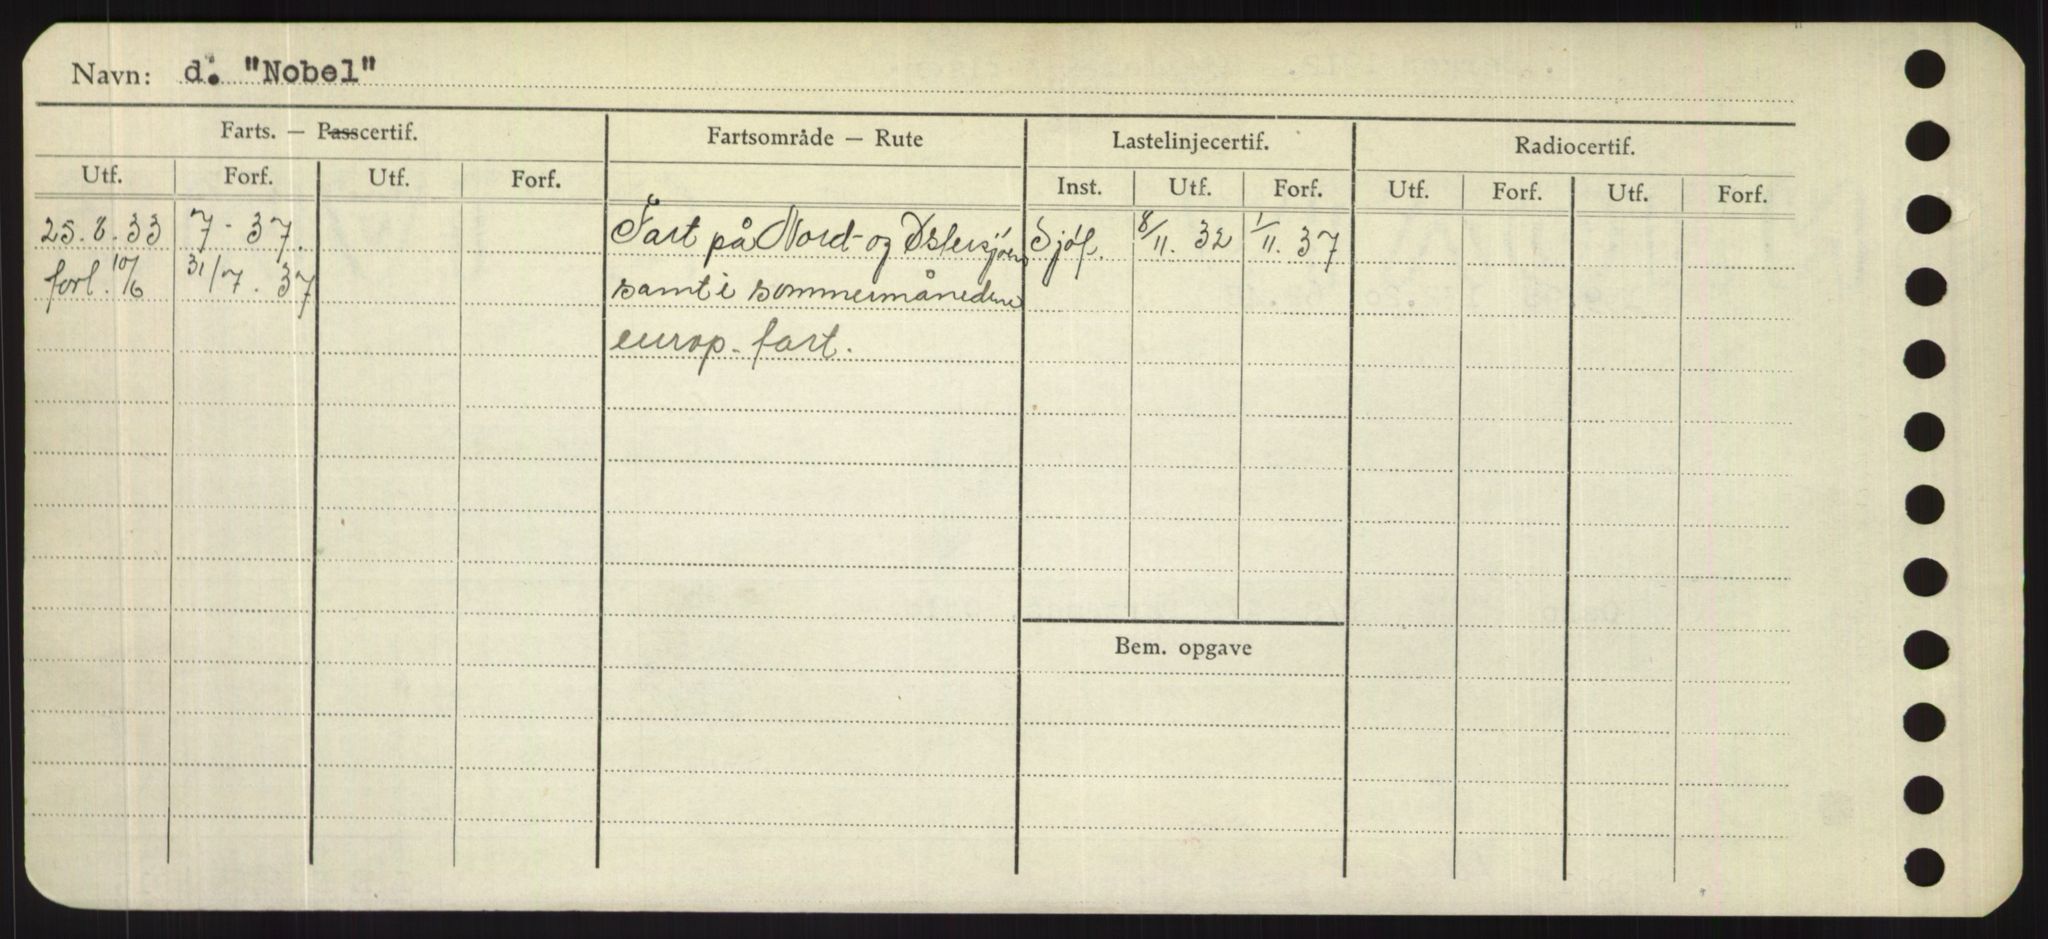 Navn: d. "Nobel"
Farts. — Passcertif. Fartsområde — Rute Lastelinjecertif. Radiocertif.
Utf. Forf. Utf. Forf. Inst. Utf. Forf. Utf. Forf. Utf. Forf.
25.8.33 7-37. Fart på Nord- og Østersjøen Sjøf. 8/11. 32 1/11. 37
forl. 10/6 31/7. 37 samt i sommermånedene
europ. fart.
Bem. opgave